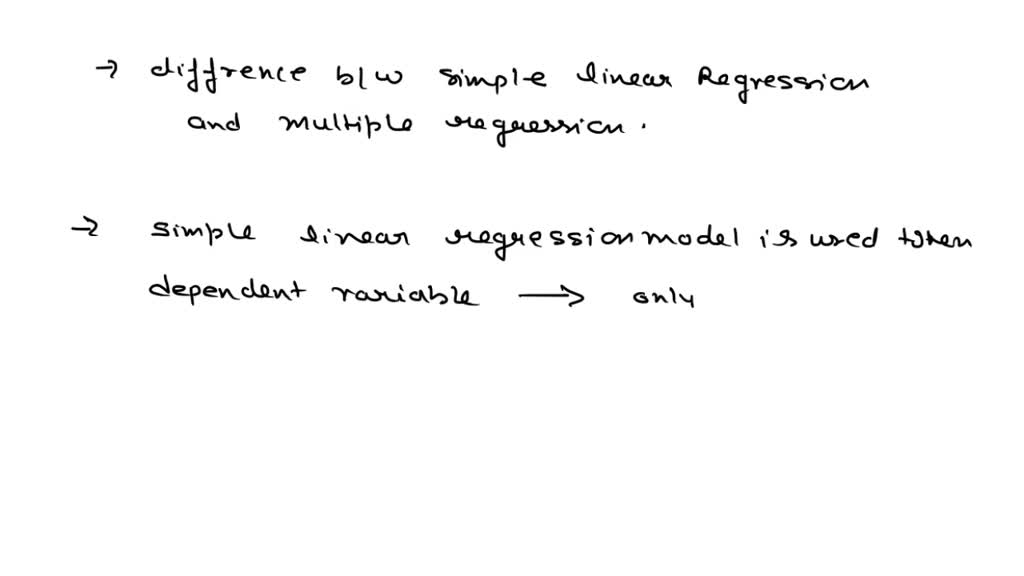 → diffrence b/w simple linear Regression
and multiple regression.
→ simple linear regression model is used when
dependent variable → only